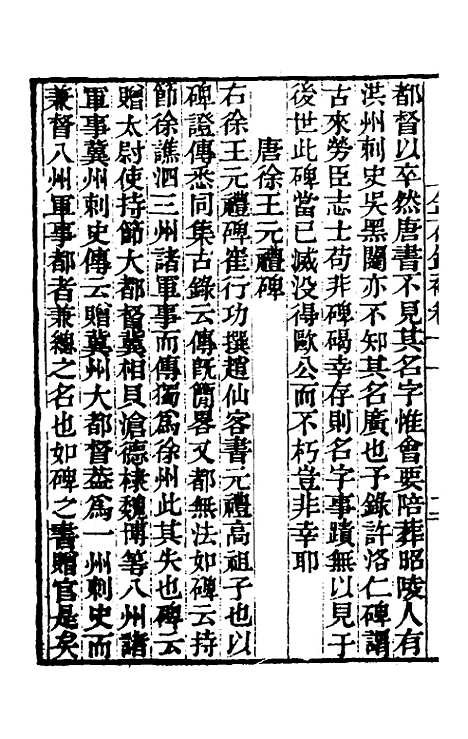 都督以卒然唐書不見其名字惟會要陪葬昭陵人有
洪州刺史吳黑闥亦不知其名廣也予錄許洛仁碑謂
古來勞臣志士苟非碑碣幸存則名字事蹟無以見于
後世此碑當已滅没得歐公而不朽豈非幸耶
唐徐王元禮碑
右徐王元禮碑崔行功撰趙仙客書元禮高祖子也以
碑證傳悉同集古錄云傳旣簡畧又都無法如碑云持
節徐譙泗三州諸軍事而傳獨爲徐州此其失也碑云
贈太尉使持節大都督冀相貝滄德棣魏博等八州諸
軍事冀州刺史傳云贈冀州大都督葢爲一州刺史而
兼督八州軍事都者兼總之名也如碑之書贈官是矣